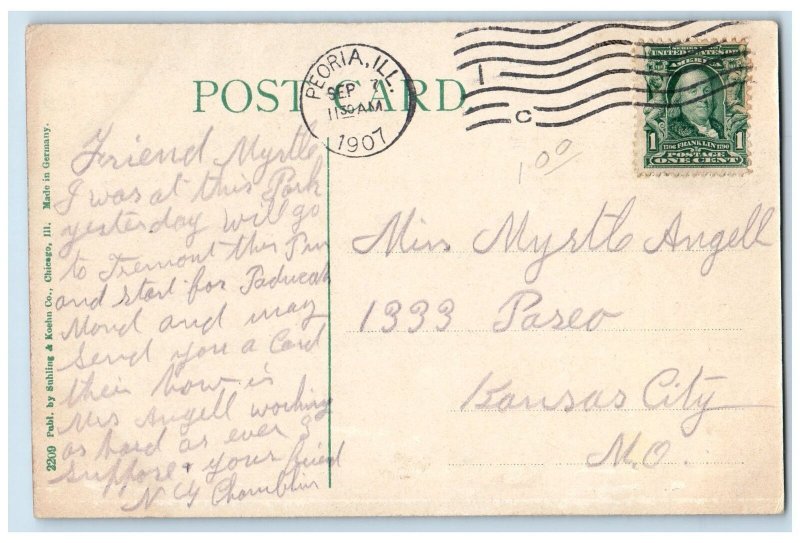 POST CARD
PEORIA, ILL.
SEP 7
11 30 AM
1907
1
C
SERIES 1902
UNITED STATES OF
AMERICA
1706 FRANKLIN 1790
POSTAGE
1 1
ONE CENT
1.00
Friend Myrtle
I was at this Park
yesterday will go
to Tremont this Pm
and start for Paducah
Mond and may
send you a Card
their how is
Mrs Angell working
as hard as ever I
suppose + your friend
N
Miss Myrtle Angell
1333 Paseo
Kansas City
M.O.
2209 Publ. by Suhling & Koehn Co., Chicago, Ill. Made in Germany.